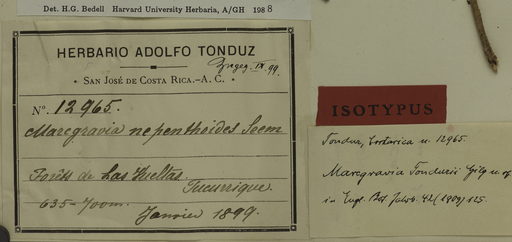 Det. H.G. Bedell Harvard University Herbaria, A/GH 1988
HERBARIO ADOLFO TONDUZ
IX. 99.
* SAN JOSÉ DE COSTA RICA.-A. C. *
Nº. 12965.
Marcgravia nepenthoides Seem
Forêts de Las Vueltas.
Tucurrique
635-700m.
Janvier 1899.
ISOTYPUS
Tonduz, Costarica n. 12965.
Marcgravia Tonduzii Gilg n. sp.
in Engl. Bot. Jahrb. 42 (1909) 125.